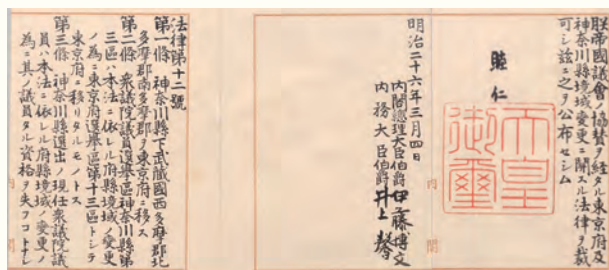 朕帝國議會ノ協贊ヲ經タル東京府及
神奈川縣境域變更ニ關スル法律ヲ裁
可シ茲ニ之ヲ公布セシム
睦仁
天皇御璽
明治二十六年三月四日
內閣總理大臣伯爵伊藤博文
內務大臣伯爵井上馨
法律第十二號
第一條 神奈川縣下武藏國西多摩郡北
多摩郡南多摩郡ヲ東京府ニ移ス
第二條 衆議院議員選擧區神奈川縣第
三區ハ本法ニ依レル府縣境域ノ變更
ノ為ニ東京府選擧區第十三區トシテ
東京府ニ移リタルモノトス
第三條 神奈川縣選出ノ現任衆議院議
員ハ本法ニ依レル府縣境域ノ變更ノ
為ニ其ノ議員タル資格ヲ失フコトナシ
內閣
內閣